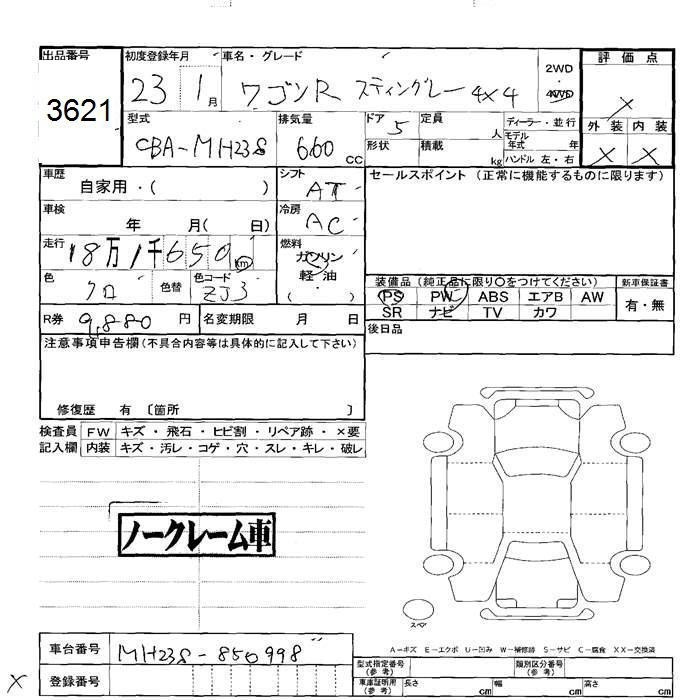 出品番号 初度登録年月 車名・グレード 評価点
3621 23 1月 ワゴンR スティングレー 4×4 2WD 4WD ×
型式 排気量 ドア 定員 ディーラー・並行 外装 内装
CBA-MH23S 660 CC 5 人 モデル年式 年 × ×
形状 積載 kg ハンドル 左・右
車歴 自家用・( ) シフト AT セールスポイント(正常に機能するものに限ります)
車検 年 月( 日) 冷房 AC
走行 18万1千650km 燃料 ガソリン
軽・油
( )
色 クロ 色替 色コード ZJ3
装備品(純正品に限り○をつけてください) 新車保証書
PS PW ABS エアB AW 有・無
SR ナビ TV カワ
R券 9,880 円 名変期限 月 日 後日品
注意事項申告欄(不具合内容等は具体的に記入して下さい)
修復歴 有 〔箇所 〕
検査員 FW キズ・飛石・ヒビ割・リペア跡・×要
記入欄 内装 キズ・汚レ・コゲ・穴・スレ・キレ・破レ
ノークレーム車
スペア
A-キズ E-エクボ U-凹み W-補修跡 S-サビ C-腐食 XX-交換済
車台番号 MH23S-850998 型式指定番号(参考) 類別区分番号(参考)
× 登録番号 車庫証明用(参考) 長さ cm 幅 cm 高さ cm